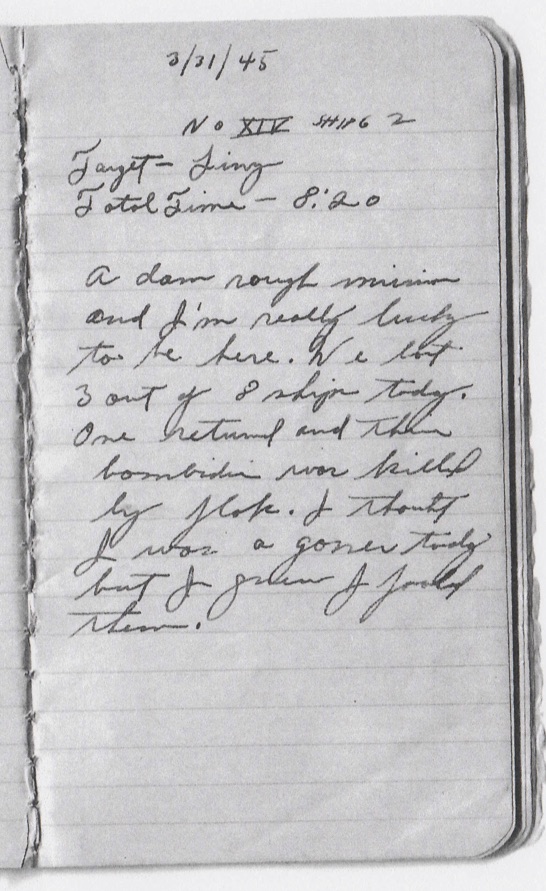 3/31/45
No XIV SHIPS 2
Target - Linz
Total Time - 8:20
A dam rough mission
and I'm really lucky
to be here. We lost
3 out of 8 ships today.
One returned and their
bombidier was killed
by flak. I thought
I was a goner today
but I guess I fooled
them.